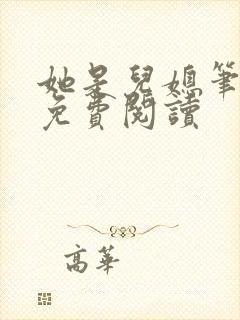 她是兒媳筆
免費閱讀
高華